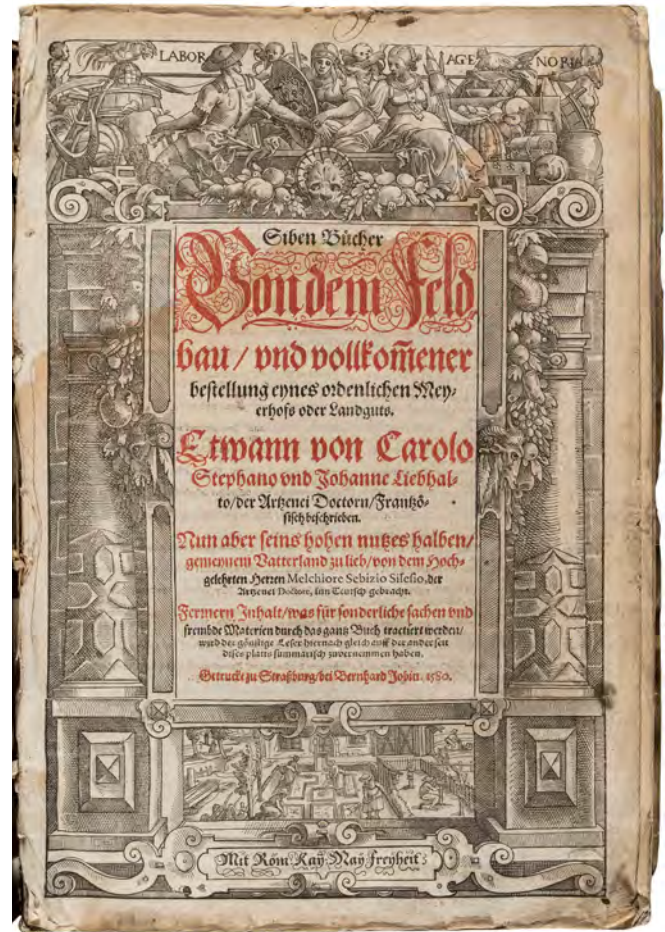 LABOR AGE NORIA
Siben Bücher
Von dem Feld
bau / vnd vollkom̃ener
bestellung eynes ordenlichen Mey-
erhofs oder Landguts.
Etwann von Carolo
Stephano vnd Johanne Liebhal-
to / der Artzenei Doctorn / Frantzö-
sisch beschrieben.
Nun aber seins hohen nutzes halben /
gemeynem Vatterland zu lieb / von dem Hoch-
gelehrten Herren Melchiore Sebizio Silesio, der
Artzenei Doctore, inn Teutsch gebracht.
Fernern Inhalt / was für sonderliche sachen vnd
frembde Materien durch das gantz Buch tractiert werden /
würd der günstige Leser hiernach gleich auff der ander seit
dises platts summarisch zuvernemmen haben.
Getruckt zu Straßburg / bei Bernhard Jobin. 1580.
Mit Röm: Kay: May: freyheit